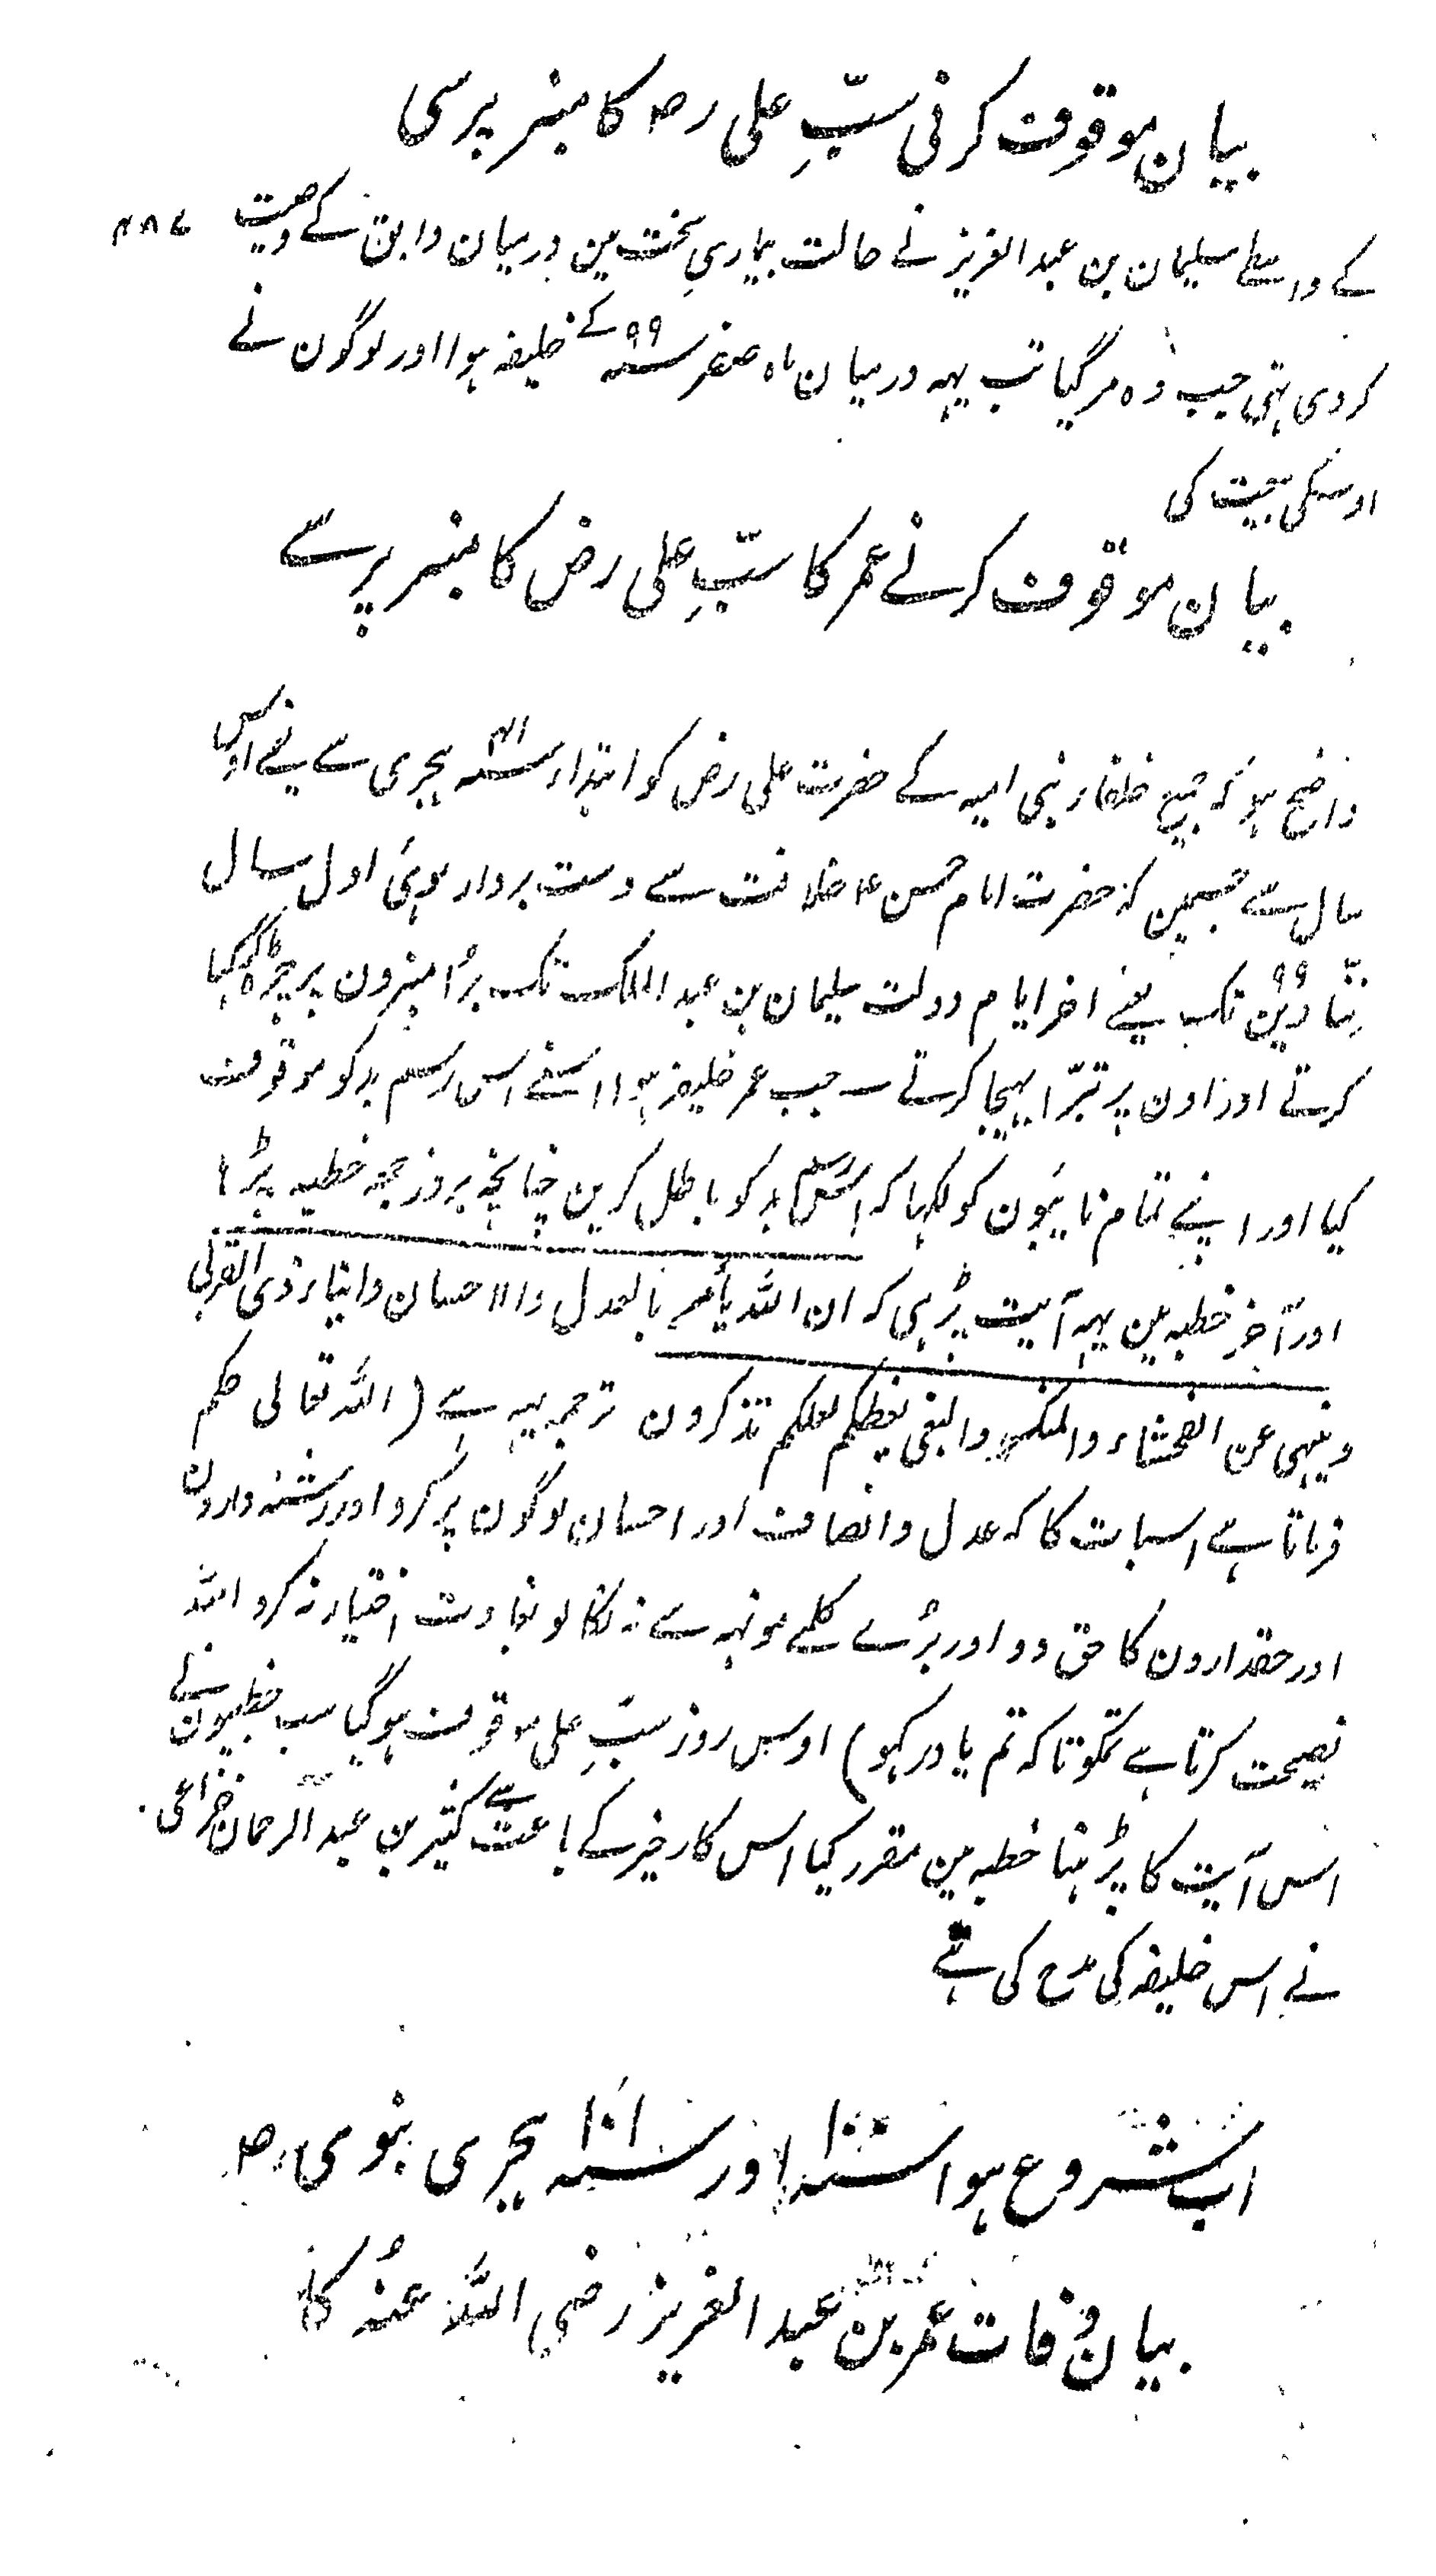 بیان موقوف کرنی سبِّ علی رض کا منبر پرسی
کے واسطے سلیمان بن عبدالعزیز نے حالت بیماری سخت مین درمیان وابق کے وصیت ۴۸۷
کر دی تہی جب وہ مر گیا تب یہہ درمیان ماہ صفر سنہ ۹۹ کے خلیفہ ہوا اور لوگون نے
اوسکی بیعت کی
بیان موقوف کرنے عمر کا سبِّ علی رض کا منبر پرسے
واضح ہو کہ جمیع خلفاء بنی امیہ کے حضرت علی رض کو ابتداء سنہ ۴۱ ہجری سے یعنے اوس
سال سے جسمین کہ حضرت امام حسن ع خلافت سے دست بردار ہوئی اول سال
ننّاوین ۹۹ تک یعنے اخر ایام دولت سلیمان بن عبد الملک تک بُرا منبرون پر چڑہکر کہا
کرتے اور اون پر تبرّا بہیجا کرتے ۔ جب عمر خلیفہ ہوا اسنے اس رسم بد کو موقوف
کیا اور اپنے تمام نایبَون کو لکہا کہ اس رسم بد کو باطل کرین چنانچہ بروز جمعہ خطبہ پڑہا
اور آخرِ خطبہ مین یہہ آیت پڑہی کہ ان اللہ یأمر بالعدل والاحسان وایتاء ذی القربی
وینہی عن الفحشاء والمنکر والبغی یعظکم لعلکم تذکرون ترجمہ یہہ ہے (اللہ تعالی حکم
فرماتا ہے اسبات کا کہ عدل وانصاف اور احسان لوگون پر کرو اور رشتہ دارون
اور حقدارون کا حق دو اور بُرے کلمے مونہہ سے نہ نکالو بغاوت اختیار نہ کرو اللہ
نصیحت کرتا ہے تمکو تاکہ تم یاد رکہو) اوس روز سبِّ علی موقوف ہو گیا سب خطیبون نے
اس آیت کا پڑہنا خطبہ مین مقرر کیا اس کار خیر کے باعث سے کثیر بن عبد الرحمان خزاعی
نے اس خلیفہ کی مدح کی ہے
اب شروع ہوا سنہ ۱۰۰ اور سنہ ۱۰۱ ہجری نبوی ص
بیان وفات عمر بن عبد العزیز رضی اللہ عنہُ کا